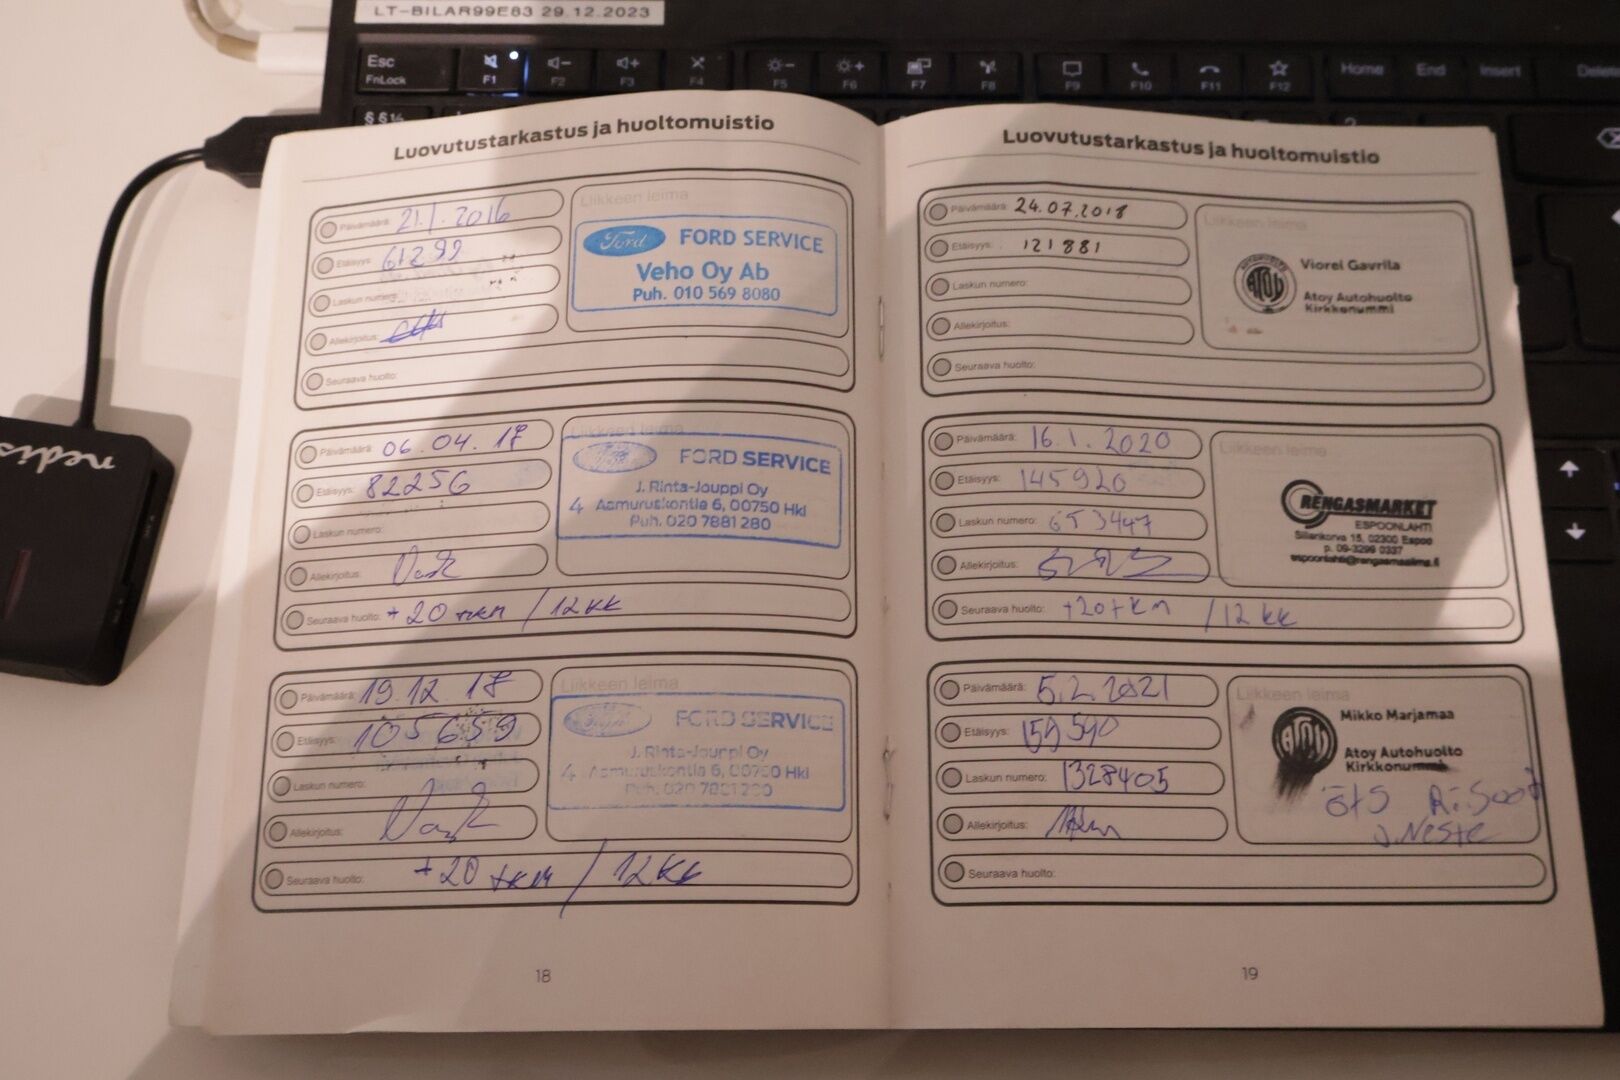 LT-BILAR99E83 29.12.2023
Esc
FnLock
F1
F2
F3
F4
F5
F6
F7
F8
F9
F10
F11
F12
Home
End
Insert
Delete
nedis
Luovutustarkastus ja huoltomuistio
Päivämäärä: 21.1.2016
Etäisyys: 61299
Laskun numero:
Allekirjoitus:
Seuraava huolto:
Liikkeen leima
Ford FORD SERVICE
Veho Oy Ab
Puh. 010 569 8080
Päivämäärä: 06.04.17
Etäisyys: 82256
Laskun numero:
Allekirjoitus:
Seuraava huolto: +20 tkm / 12 kk
Liikkeen leima
Ford FORD SERVICE
J. Rinta-Jouppi Oy
4 Asmuruskontie 6, 00750 Hki
Puh. 020 7881 280
Päivämäärä: 19.12.17
Etäisyys: 105659
Laskun numero:
Allekirjoitus:
Seuraava huolto: +20 tkm / 12 kk
Liikkeen leima
FORD SERVICE
J. Rinta-Jouppi Oy
4 Asmuruskontie 6, 00750 Hki
Puh. 020 7881 280
18
Luovutustarkastus ja huoltomuistio
Päivämäärä: 24.07.2018
Etäisyys: 121881
Laskun numero:
Allekirjoitus:
Seuraava huolto:
Liikkeen leima
AUTOHUOLTO
ATOY
Viorel Gavrila
Atoy Autohuolto
Kirkkonummi
Päivämäärä: 16.1.2020
Etäisyys: 145920
Laskun numero: 653447
Allekirjoitus:
Seuraava huolto: +20 tkm / 12 kk
Liikkeen leima
RENGASMARKET
ESPOONLAHTI
Sillankorva 15, 02300 Espoo
p. 09-3299 0337
espoonlahti@rengasmaailma.fi
Päivämäärä: 5.2.2021
Etäisyys: 159590
Laskun numero: 1328405
Allekirjoitus:
Seuraava huolto:
Liikkeen leima
ATOY
Mikko Marjamaa
Atoy Autohuolto
Kirkkonummi
öts
J. Neste
19